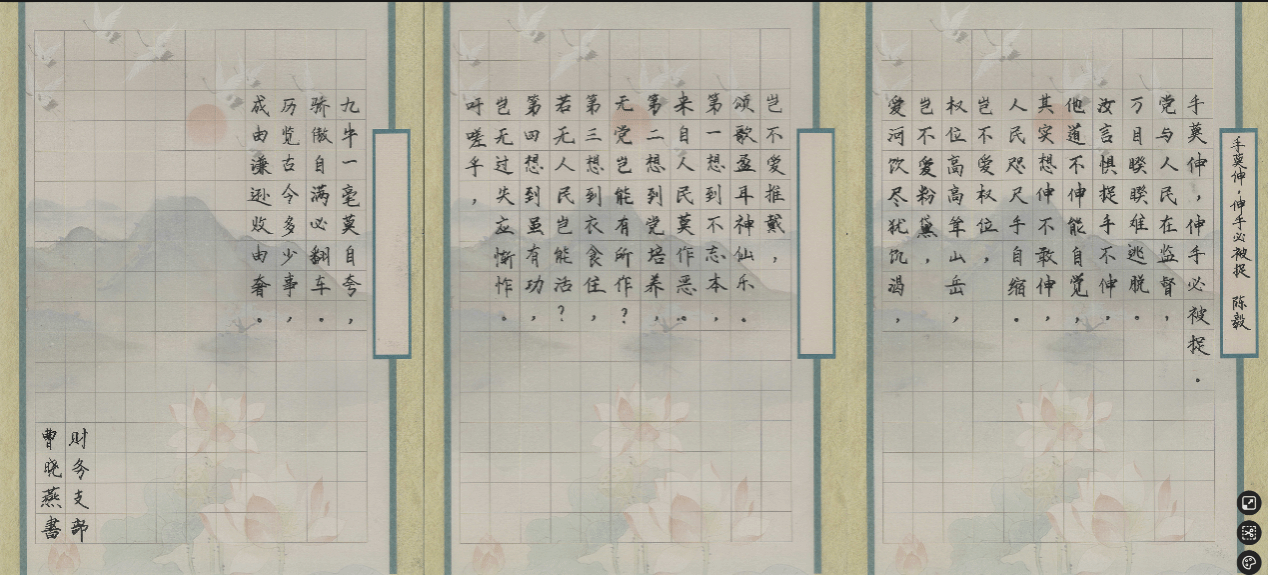 手莫伸，伸手必被捉 陈毅
手莫伸，伸手必被捉.
党与人民在监督，
万目睽睽难逃脱.
汝言惧捉手不伸，
他道不伸能自觉，
其实想伸不敢伸，
人民咫尺手自缩.
岂不爱权位，
权位高高耸山岳，
岂不爱粉黛，
爱河饮尽犹饥渴，
岂不爱推戴，
颂歌盈耳神仙乐.
第一想到不忘本，
来自人民莫作恶。
第二想到党培养，
无党岂能有所作？
第三想到衣食住，
若无人民岂能活？
第四想到虽有功，
岂无过失应惭怍。
吁嗟乎，
九牛一毫莫自夸，
骄傲自满必翻车。
历览古今多少事，
成由谦逊败由奢。
财务支部
曹晓燕书